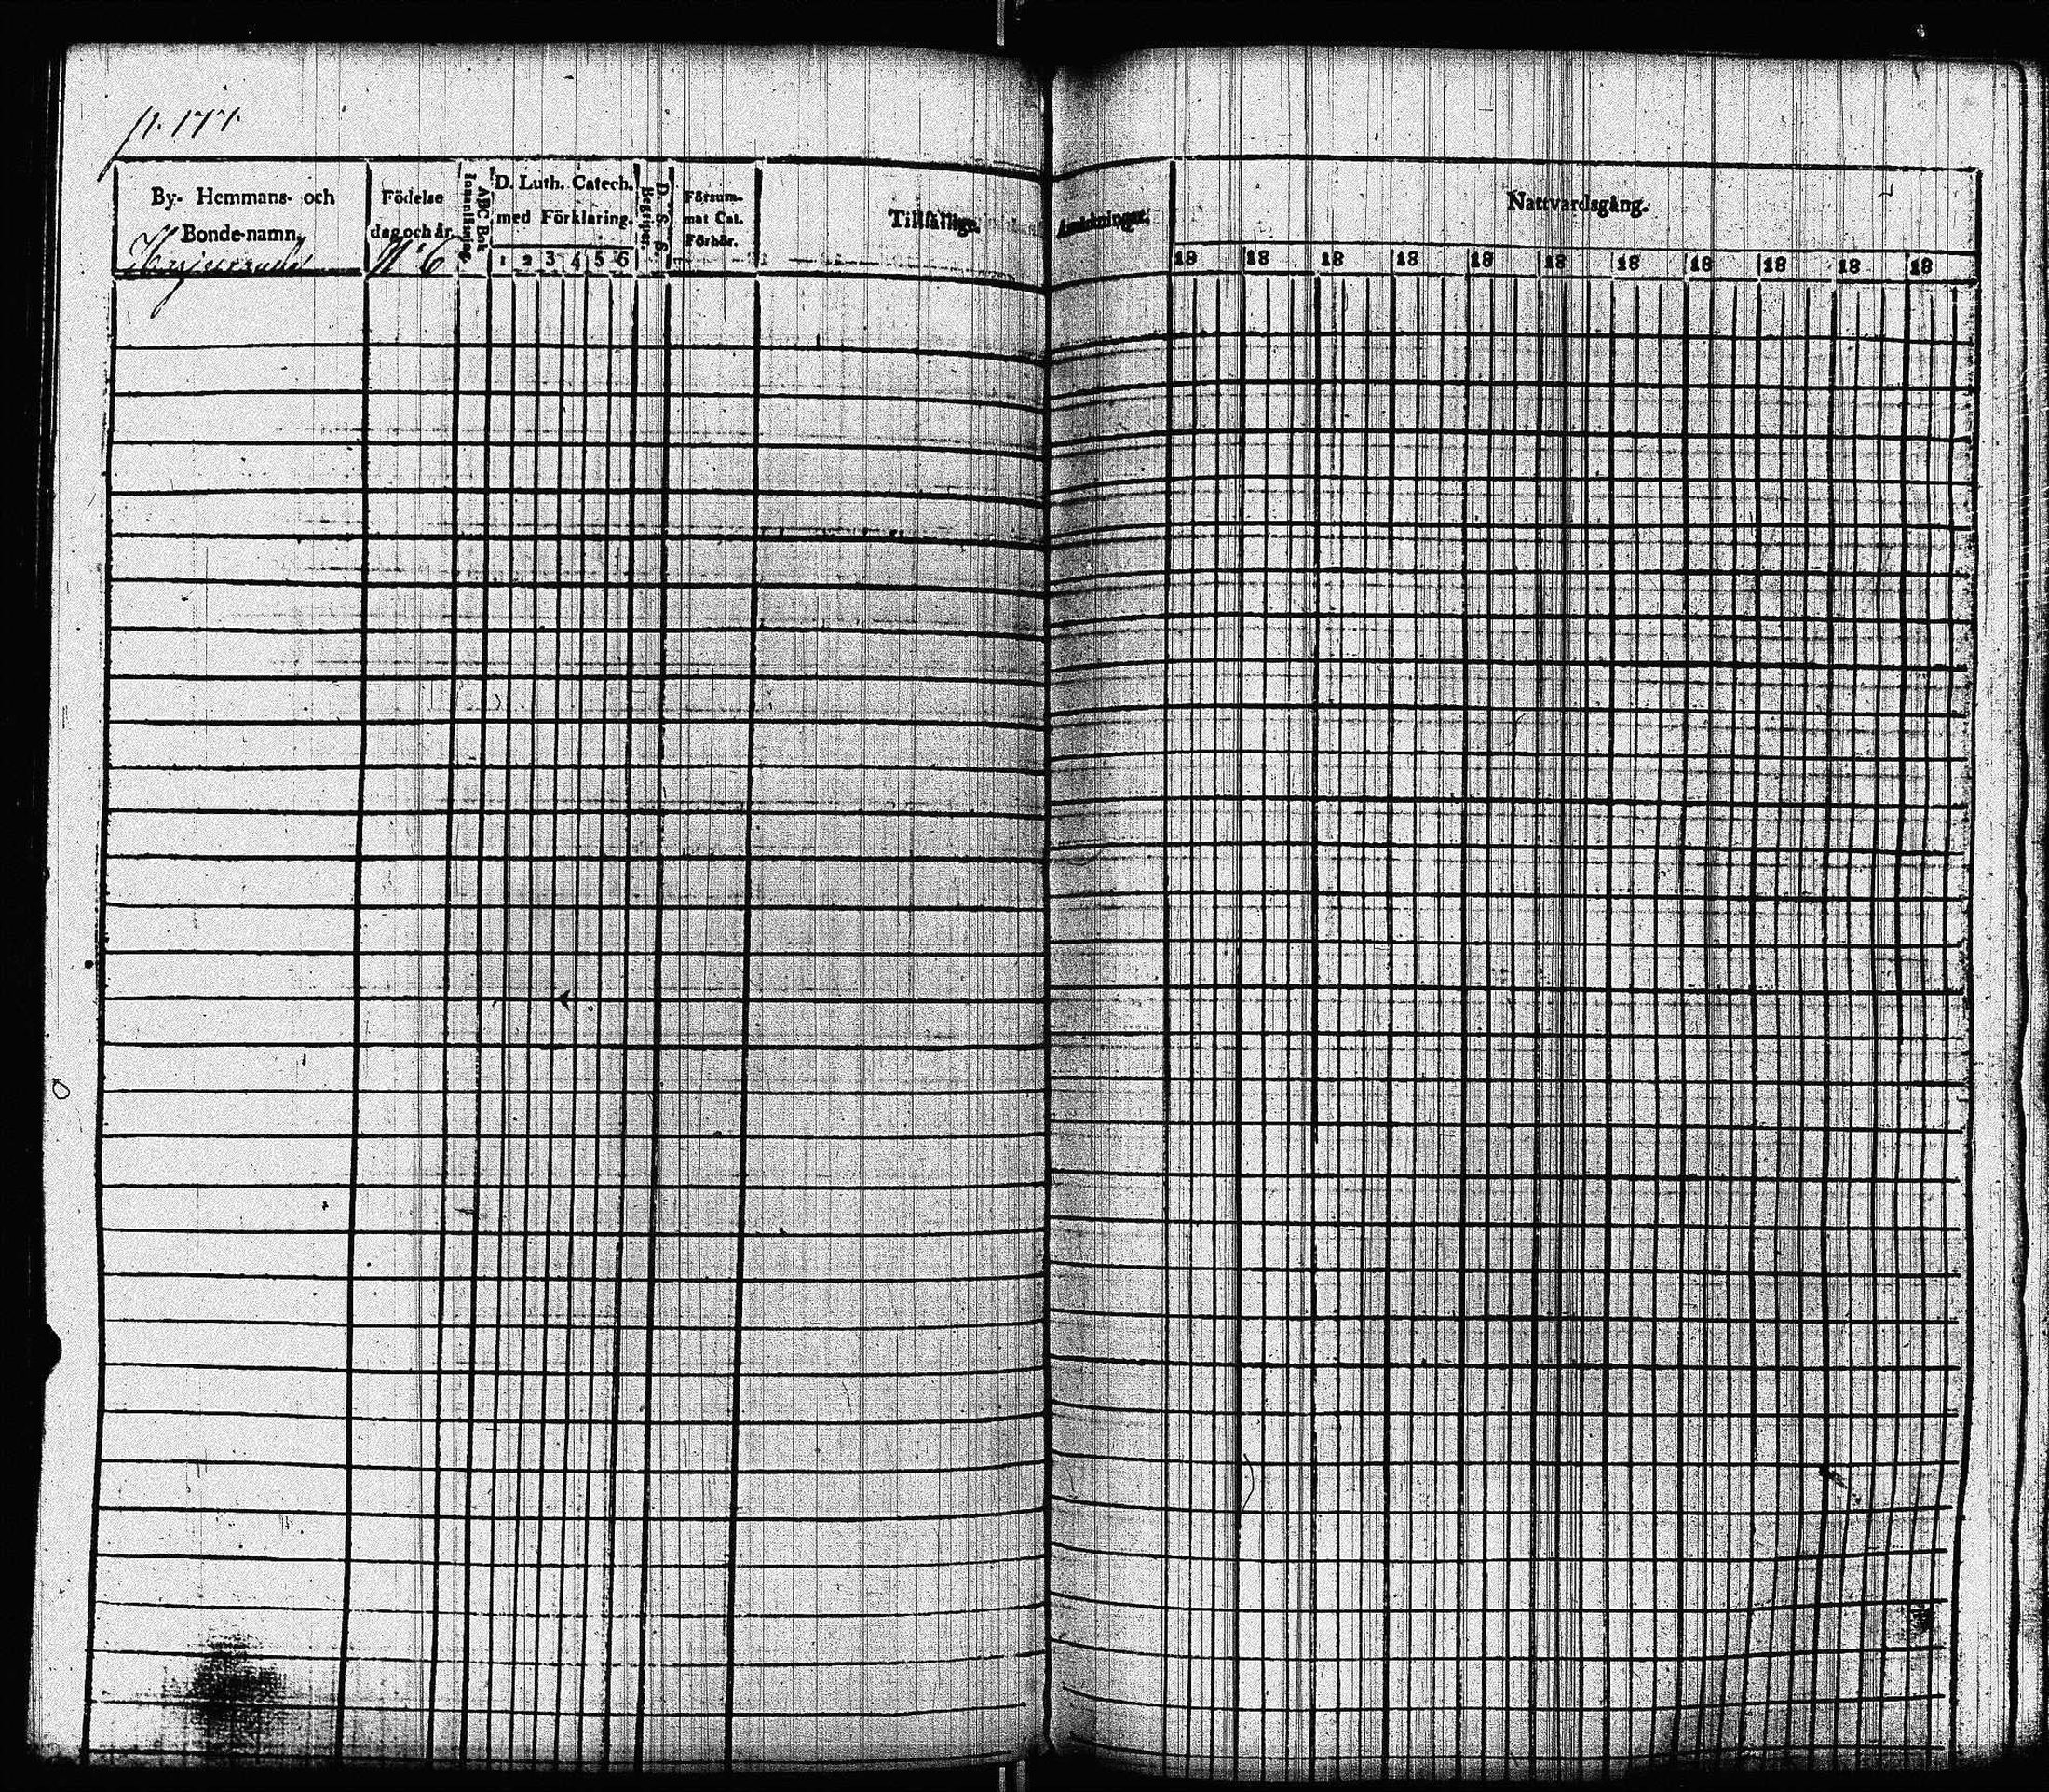 p. 177.
By- Hemmans- och
Bonde-namn.
Födelse
dag och år.
N:o 6
Innanläsning
ABC Bok
D. Luth. Catech.
med Förklaring.
1 2 3 4 5 6
Begriper.
D. S. S. g.
Försum-
mat Cat.
Förhör.
Tillfällige
Anmärkningar.
Nattvardsgång.
18 18 18 18 18 18 18 18 18 18 18